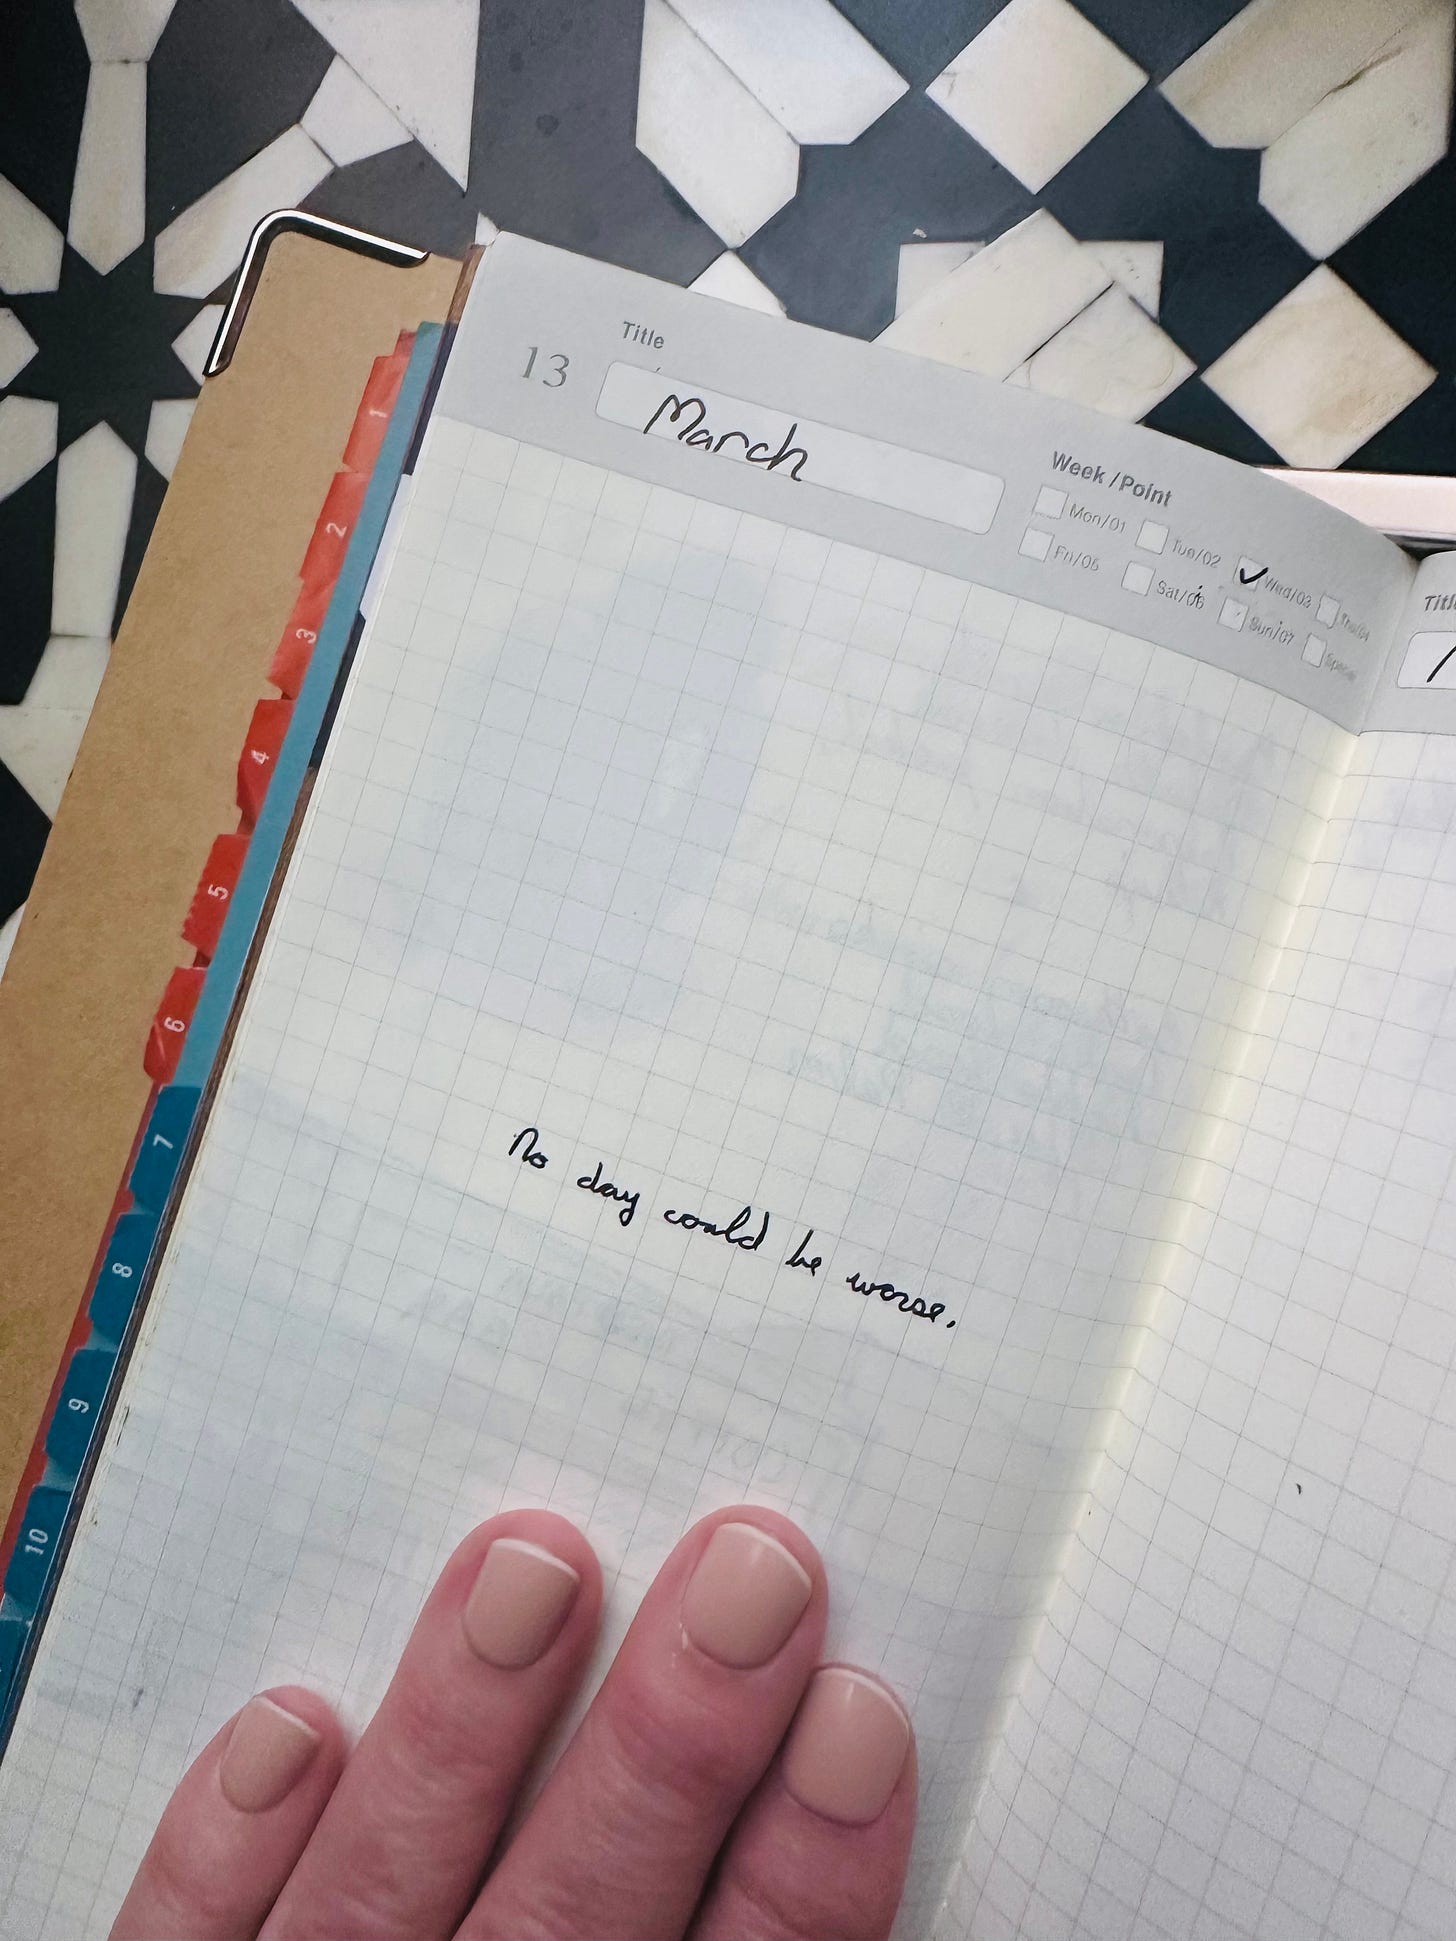 Title
13
March
Week / Point
Mon/01 Tue/02 Wed/03 Thu/04
Fri/05 Sat/06 Sun/07
No day could be worse.
1
2
3
4
5
6
7
8
9
10